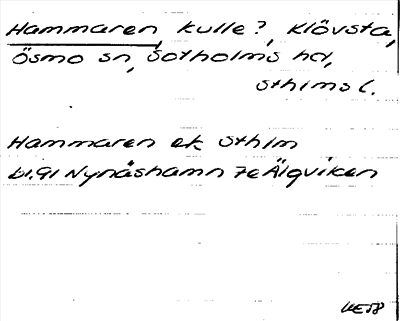 Hammaren, kulle?, Klövsta,
Ösmo sn, Sotholms hd,
Sthlms l.
Hammaren ek Sthlm
bl. 91 Nynäshamn 7e Älgviken